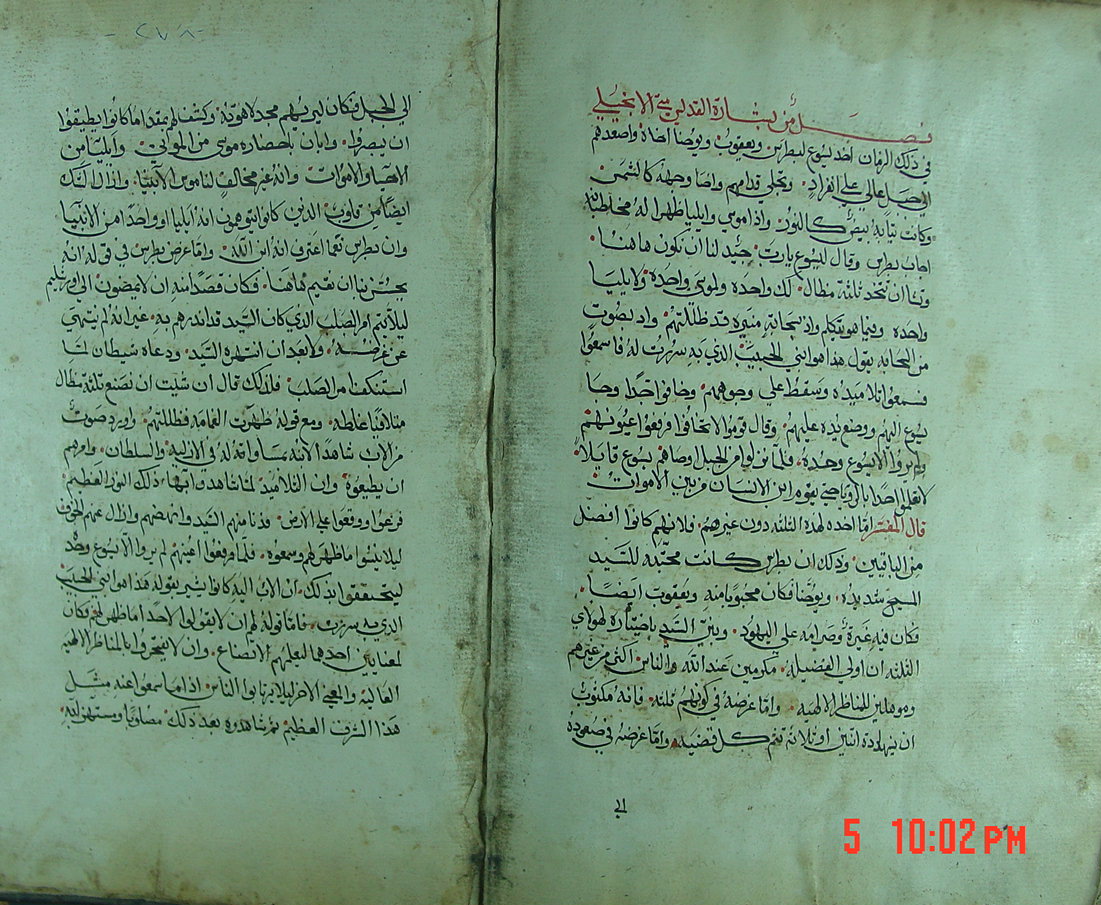 فصل من بشارة القديس متى الانجيلي
في ذلك الزمان اخد يسوع لبطرس ويعقوب ويوحنا اخاه واصعدهم
الى جبل عالي على انفراد وتجلى قدامهم واضا وجهه كالشمس
وكانت ثيابه بيض كالنور واذا موسى وايليا ظهرا له مخاطبته
اجاب بطرس وقال ليسوع يارب جيد لنا ان نكون هاهنا
وتشا ان نتخد ثلثة مظال لك واحده ولموسى واحدة ولايليا
واحده وفيما هو يتكلم واذ سحابة منيره قد ظللتهم واد بصوت
من السحابه يقول هذا هو ابني الحبيب الذي به سررت له فاسمعوا
فسمعوا تلاميده وسقطو على وجوههم وخافوا جدا وجا
يسوع اليهم ووضع يده عليهم وقال قوموا لا تخافوا فرفعوا عيونهم
ولم يروا الا يسوع وحده فلما نزلوا من الجبل اوصاهم يسوع قايلا
لا تعلموا احدا بالرويا حتى يقوم ابن الانسان من بين الاموات
قال المفسر اما اخده لهذه الثلثه دون غيرهم فلانهم كانوا افضل
من الباقين وذلك ان بطرس كانت محبته للسيد
المسيح شديده ويوحنا فكان محبوبا منه ويعقوب ايضا
فكان فيه غيرة وصرامه على اليهود وبين السيد باختياره لهولاي
الثلثه ان اولي الفضيله مكرمين عند الله والناس اكثر من غيرهم
وموهلين للمناظر الالهيه واما غرضه في كونهم ثلثه فانه مكتوب
ان بشهادة اثنين او ثلاثه تتم كل قضيه واما غرضه في صعوده
الى
-٢٧٨-
الى الجبل فكان ليريهم مجد لاهوته وكشف لهم بمقدار ما كانوا يطيقوا
ان يبصروا وابان باحضاره موسى من الموتى وايليا من
الاحيا والاموات وانه غير مخالف لناموس الانبيا وازال الشك
ايضا من قلوب الذين كانوا يتوهمون انه ايليا او واحدا من الانبيا
وان بطرس نعما اعترف انه ابن الله واما غرض بطرس في قوله انه
يحسن بنا ان نقيم هاهنا فكان قصدا منه ان لا يمضون الى اورشليم
ليلا يتم امر الصلب الذي كان السيد قد انذرهم به غير انه لم ينتهي
عن غرضه ولا بعد ان انتهره السيد ودعاه شيطان لما
استنكف من الصلب فلذلك قال ان شيت ان نصنع ثلثة مظال
متلافيا غلطه ومع قوله ظهرت الغمامه فظللتهم وورد صوت
من الاب شاهدا لابنه بمساواته له في الازليه والسلطان وامرهم
ان يطيعوه وان التلاميذ لما شاهدوا بها ذلك النور العظيم
فزعوا ووقعوا على الارض فدنا منهم السيد وانهضهم وازال عنهم الخوف
ليلا ينسوا ما ظهر لهم وسمعوه فلما رفعوا اعينهم لم يروا الا يسوع وحده
ليتحققوا بذلك ان الاب اليه كان يشير بقوله هذا هو ابني الحبيب
الذي به سررت فاما قوله لهم ان لا يقولوا لاحد ما ظهر لهم فكان
لمعنايين احدهما ليعلمهم الاتضاع وان لا يفتخروا بالمناظر الالهيه
العاليه والمعنى الاخر ليلا يرتابوا الناس اذا ما سمعوا عنه مثل
هذا الشرف العظيم ثم شاهدوه بعد ذلك مصلوبا ومستهزا به
5 10:02 PM